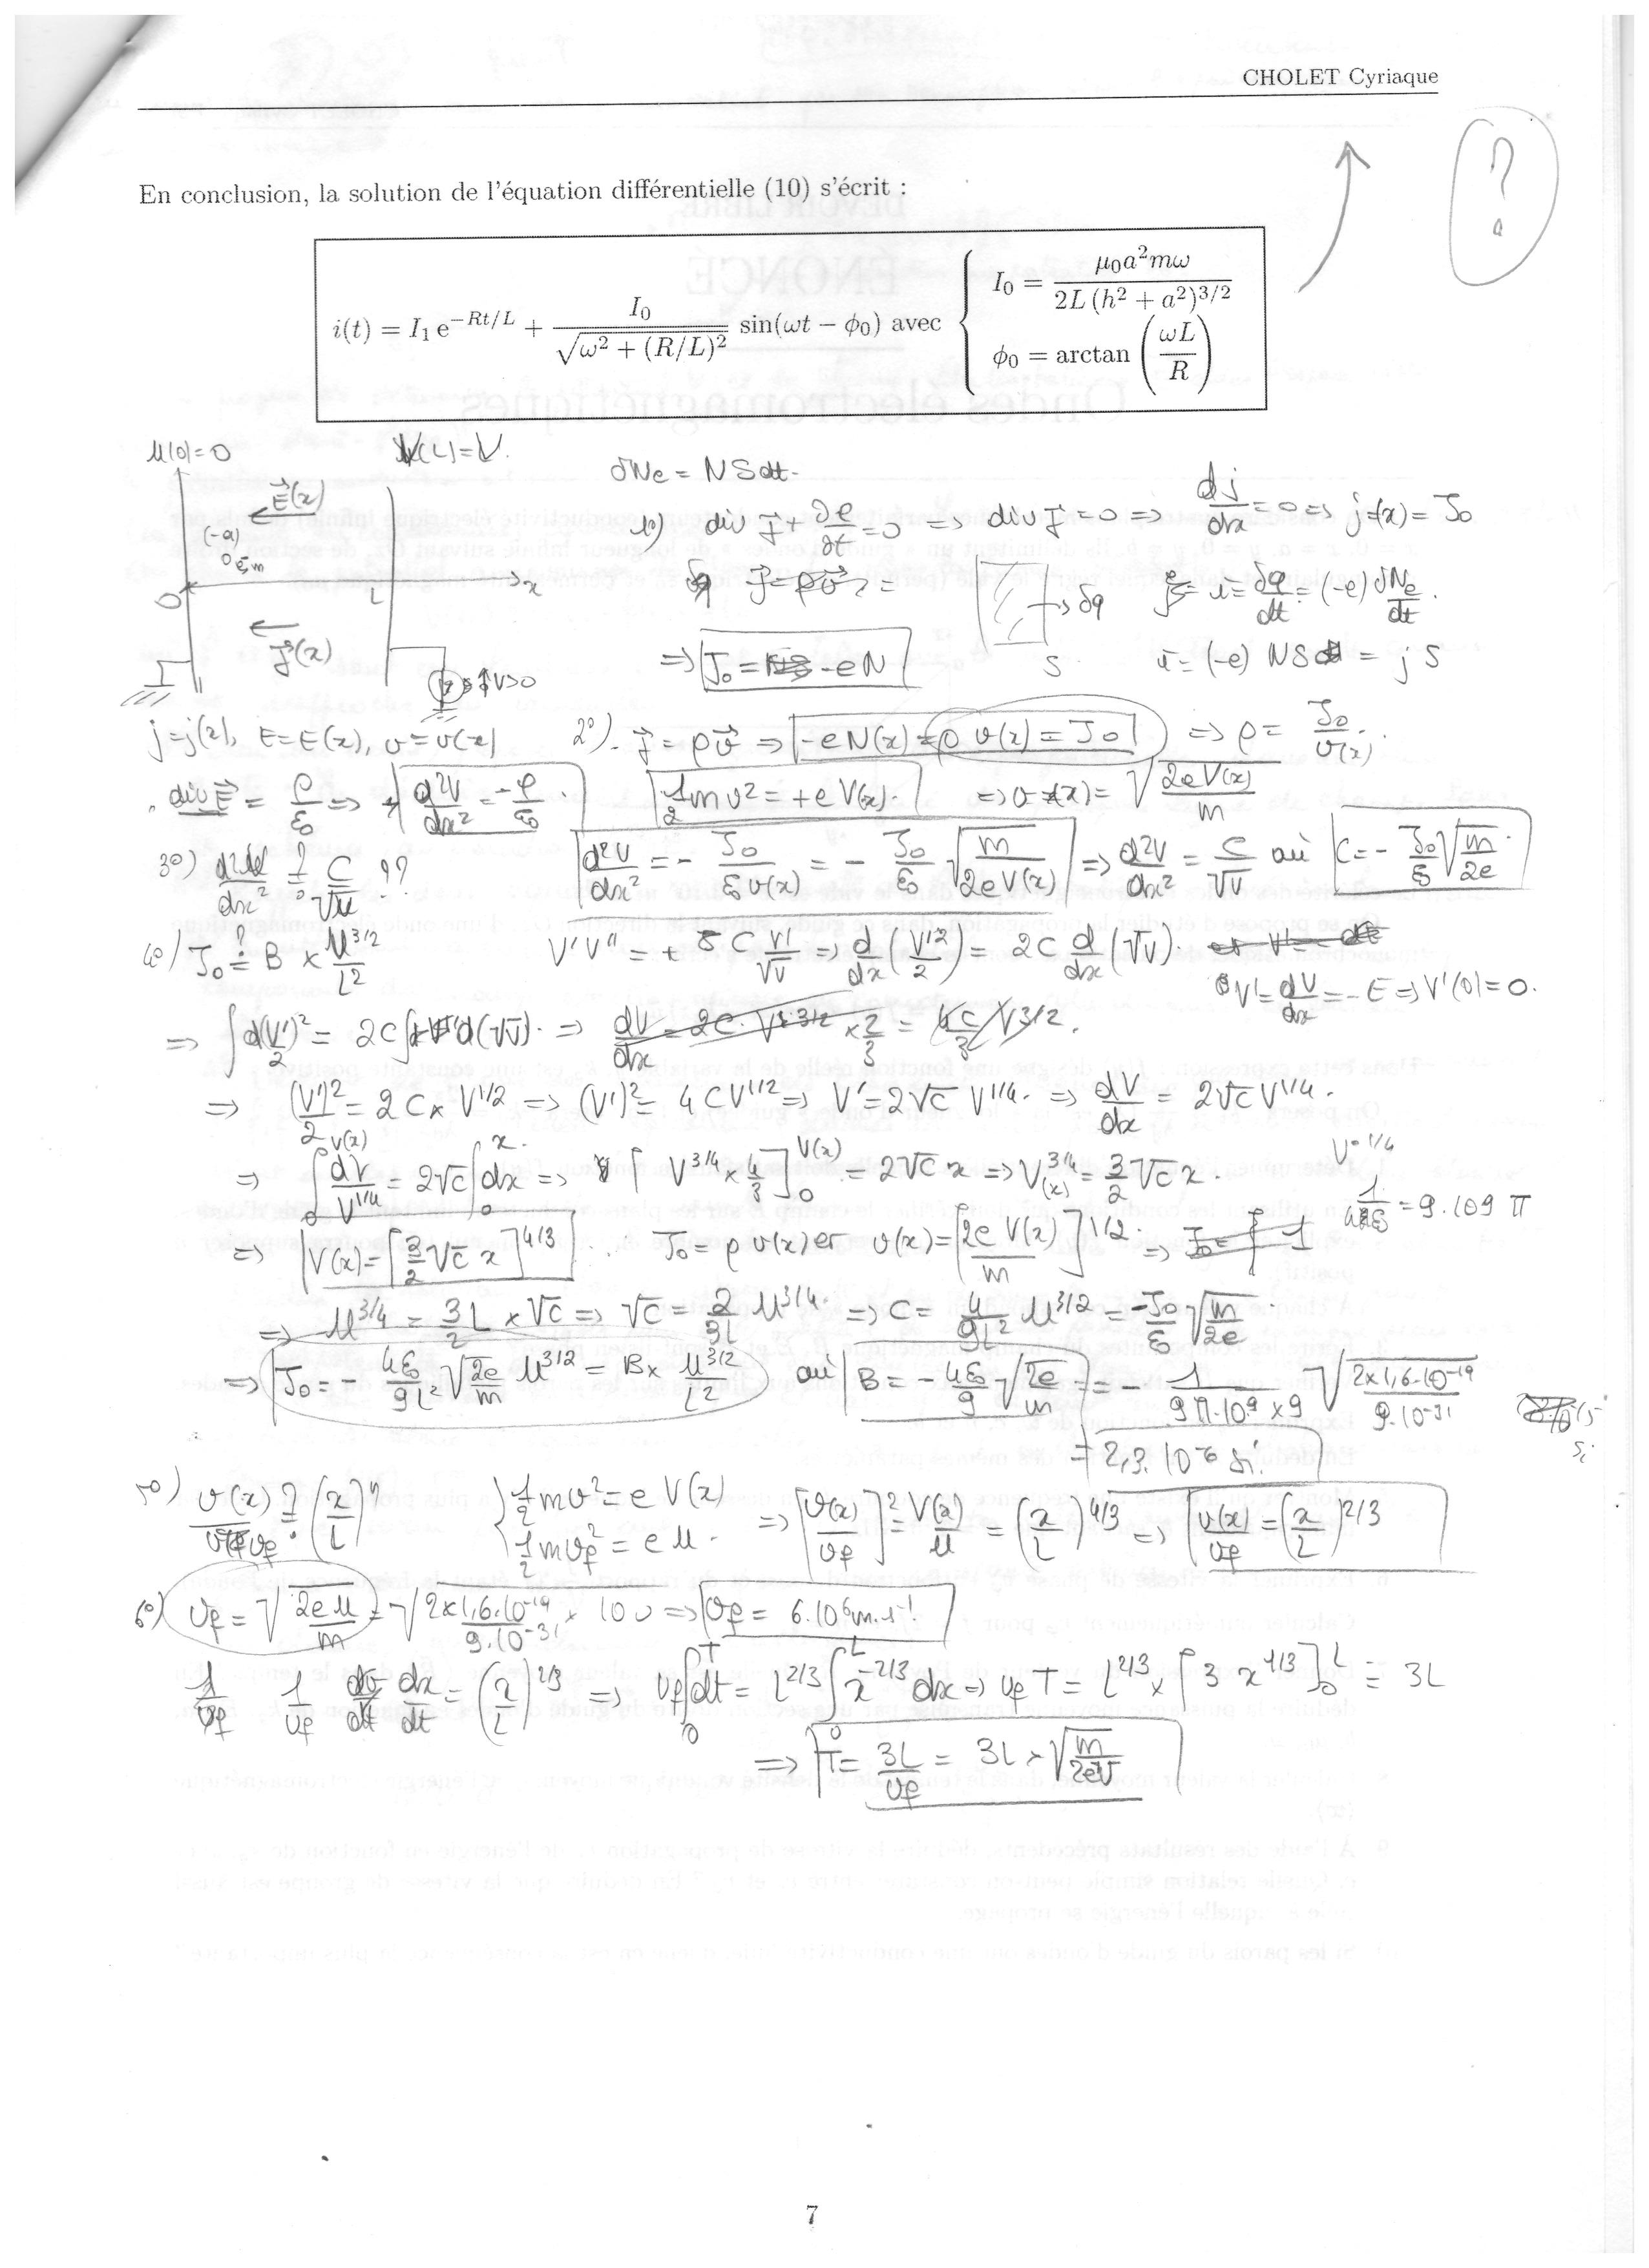 CHOLET Cyriaque
?
En conclusion, la solution de l'équation différentielle (10) s'écrit :
i(t) = I₁ e^{-Rt/L} + I₀/√(ω² + (R/L)²) sin(ωt − ϕ₀) avec { I₀ = μ₀a²mω / 2L (h² + a²)^{3/2}
ϕ₀ = arctan (ωL/R)
U(0) = 0 V(L) = V. δNe = NS dt.
E⃗(x)
O L x
j⃗(x)
V>0
1°) div j⃗ + ∂ρ/∂t = 0 => div j⃗ = 0 => dj/dx = 0 => j(x) = J₀
-> δq i = δq/dt = (-e) δNe/dt.
=> J₀ = -eN S i = (-e) NS = j S
j = j(x), E = E(x), v = v(x) 2°). j⃗ = ρv⃗ => -e N(x) = ρ v(x) = J₀ => ρ = J₀/v(x).
div E⃗ = ρ/ε₀ => d²V/dx² = -ρ/ε₀. 1/2 m v² = +e V(x). => v(x) = √(2eV(x)/m)
3°) d²U/dx² =? C/√U ?? d²V/dx² = - J₀/(ε₀ v(x)) = - J₀/ε₀ √(m/2eV(x)) => d²V/dx² = C/√V où C = - J₀/ε₀ √(m/2e).
4°) J₀ =? B × U^{3/2}/L² V'V'' = + C V'/√V => d/dx (V'²/2) = 2C d/dx (√V).
V' = dV/dx = -E => V'(0) = 0.
=> ∫ d(V')²/2 = 2C ∫ d(√V). => dV/dx = 2C. V^{3/2} × 2/3 = 4C/3 V^{3/2}.
=> (V')²/2 = 2C × V^{1/2} => (V')² = 4CV^{1/2} => V' = 2√C V^{1/4}. => dV/dx = 2√C V^{1/4}.
=> ∫₀^{V(x)} dV/V^{1/4} = 2√C ∫₀^x dx => [V^{3/4} × 4/3]₀^{V(x)} = 2√C x => V^{3/4}(x) = 3/2 √C x.
V^{-1/4}
1/4πε₀ = 9.10⁹ π
=> V(x) = [3/2 √C x]^{4/3} J₀ = ρ v(x) et v(x) = [2e V(x)/m]^{1/2}. =>
=> U^{3/4} = 3L/2 × √C => √C = 2/3L U^{3/4}. => C = 4/9L² U^{3/2} = - J₀/ε₀ √(m/2e).
=> J₀ = - 4ε₀/9L² √(2e/m) U^{3/2} = B × U^{3/2}/L² où B = - 4ε₀/9 √(2e/m) = - 1/(9π.10⁹ × 9) √(2×1,6.10⁻¹⁹/9.10⁻³¹)
= 2,3.10⁻⁶ Si.
5°) v(x)/vf =? (x/L)ⁿ { 1/2 m v² = e V(x) 1/2 m vf² = e U. => [v(x)/vf]² = V(x)/U = (x/L)^{4/3} => v(x)/vf = (x/L)^{2/3}
6°) vf = √(2eU/m) = √(2×1,6.10⁻¹⁹/9.10⁻³¹ × 100) => vf = 6.10⁶ m.s⁻¹
1/vf 1/vf dx/dt = (x/L)^{2/3} => vf ∫₀^T dt = L^{2/3} ∫₀^L x^{-2/3} dx => vf T = L^{2/3} × [3 x^{1/3}]₀^L = 3L
=> T = 3L/vf = 3L × √(m/2eU)
7